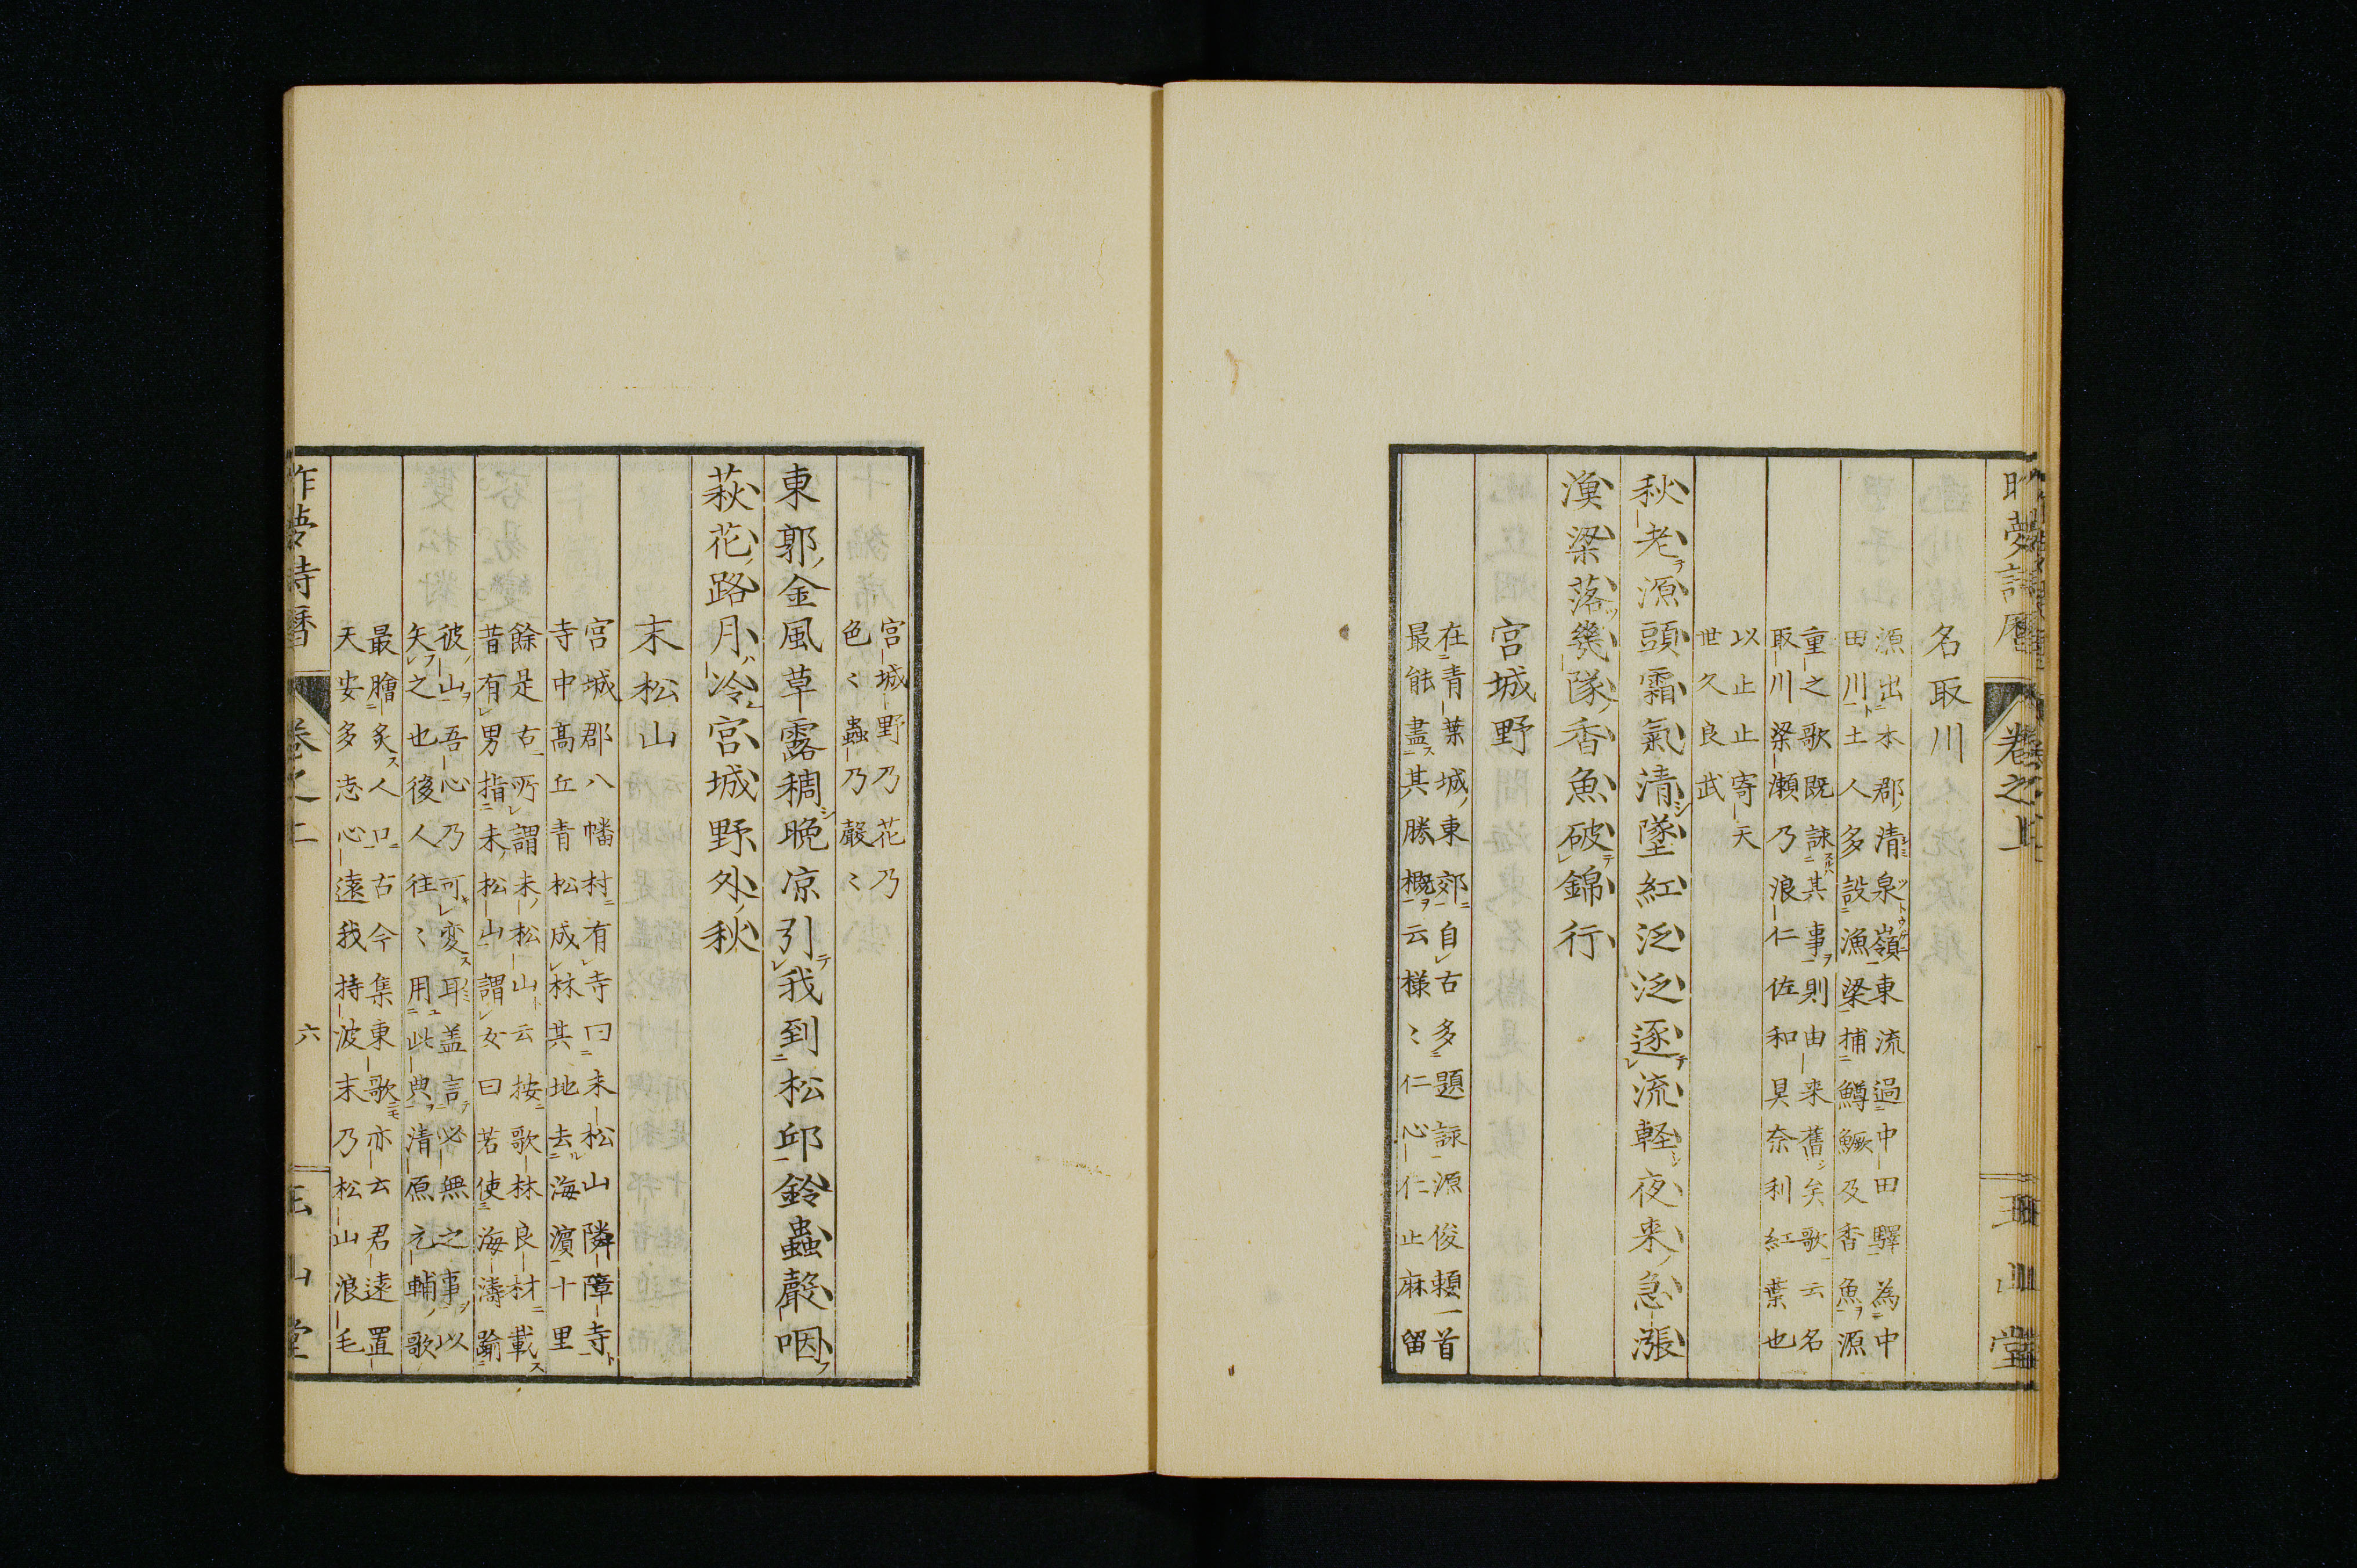 昨夢詩暦 卷之上 玉山堂
名取川
源出本郡清泉嶺東流過中田驛為中
田川土人多設漁梁捕鱒鱖及香魚源
重之歌既詠其事則由来舊矣歌云名
取川梁瀬乃浪仁佐和具奈利紅葉也
以止止寄天
世久良武
秋老源頭霜氣清墜紅泛泛逐流軽夜来急漲
漁梁落幾隊香魚破錦行
宮城野
在青葉城東郊自古多題詠源俊頼一首
最能盡其勝概云様〻仁心仁止麻留
宮城野乃花乃
色〻蟲乃聲〻
東郭金風草露稠晩凉引我到松邱鈴蟲聲咽
萩花路月冷宮城野外秋
末松山
宮城郡八幡村有寺曰末松山隣障寺
寺中髙丘青松成林其地去海濵十里
餘是古所謂末松山云按歌林良材載
昔有男指末松山謂女曰若使海濤踰
彼山吾心乃可変耳盖言必無之事以
矢之也後人往〻用此典清原元輔歌
最膾炙人口古今集東歌亦云君遠置
天安多志心遠我持波末乃松山浪毛
昨夢詩暦 卷之上 六 玉山堂